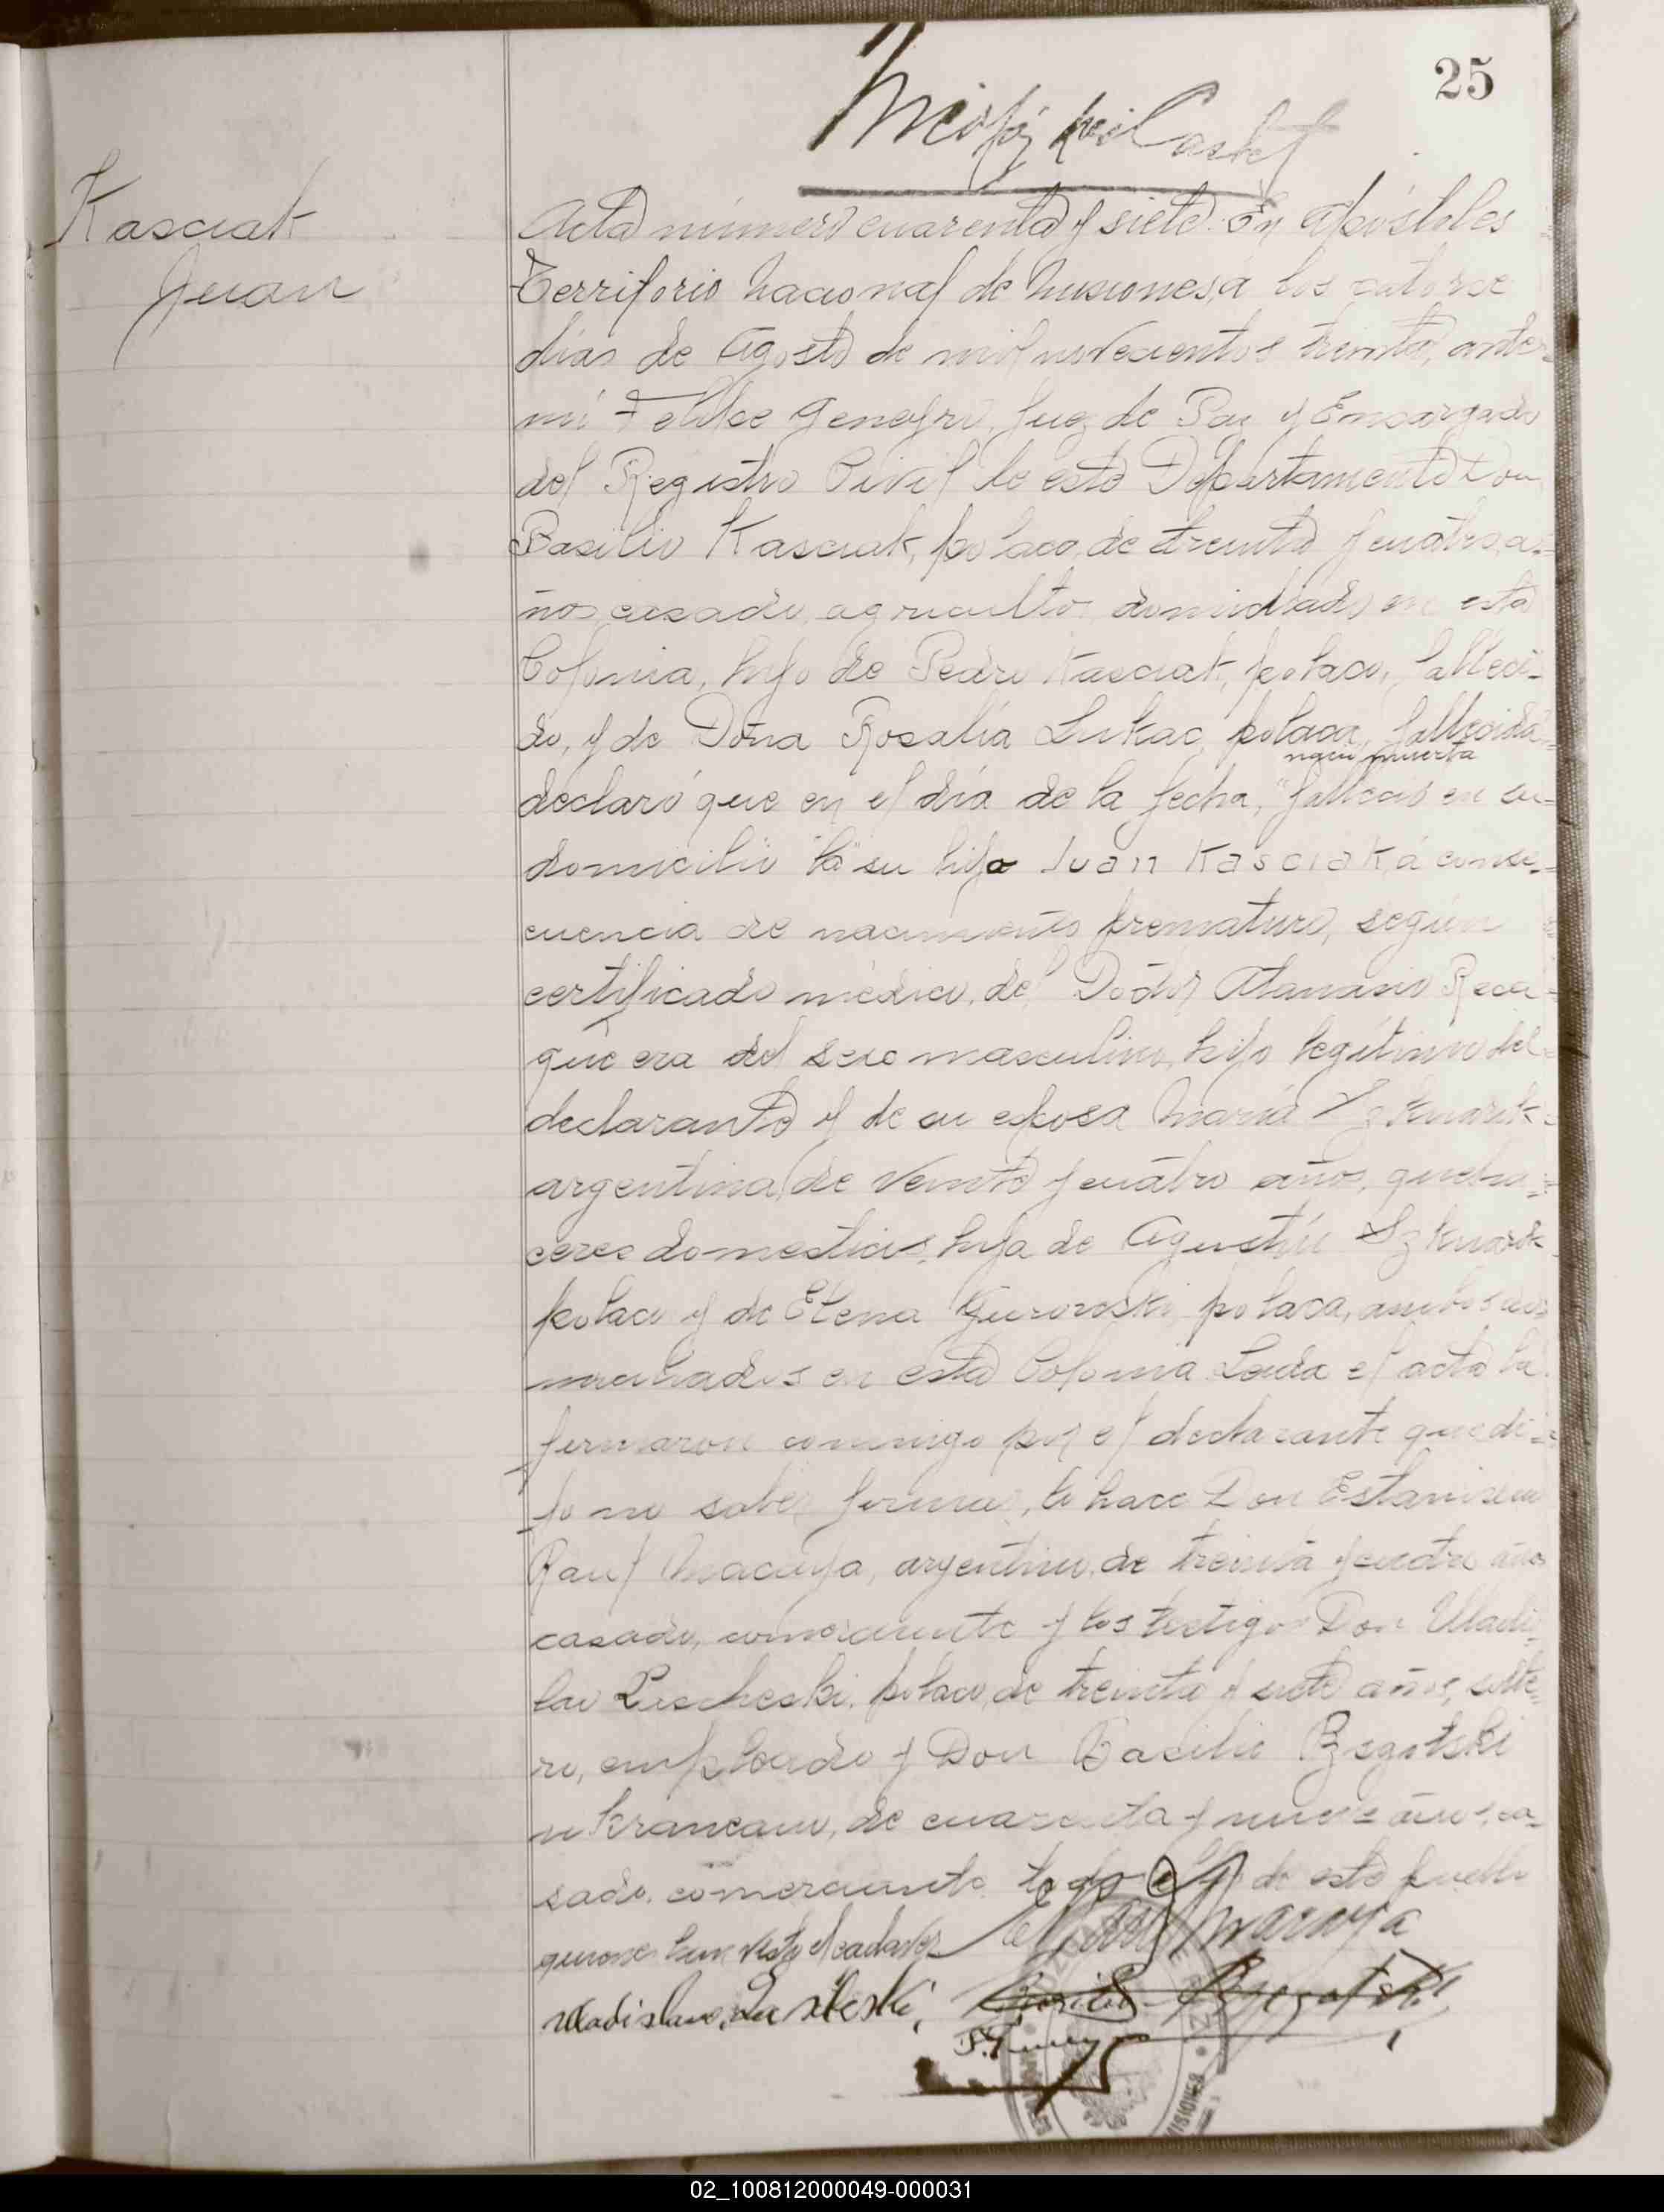 25
Kasciak
Juan
Acta número cuarenta y siete. En Apóstoles
Territorio Nacional de Misiones, á los catorce
días de Agosto de mil novecientos treinta, ante
mí Felice Juez de Paz y Encargado
del Registro Civil de este Departamento Don
Basilio Kasciak, polaco, de treinta y cuatro a-
ños, casado, agricultor domiciliado en esta
Colonia, hijo de Pedro Kasciak, polaco, falleci-
do, y de Doña Rosalía Lukac, polaca, fallecida
declaró que en el día de la fecha, "falleció en su
domicilio "la" su hijo Juan Kasciak á conse-
cuencia de nacimiento prematuro, según
certificado médico, del Doctor Atanasio
que era del sexo masculino, hijo legítimo del
declarante y de su esposa María Szknarik
argentina, de veinte y cuatro años, queha-
ceres domesticos, hija de Agustín Szknarik
polaco y de Elena polaca, ambos do-
miciliados en esta Colonia. Leida el acta la
firmaron conmigo por el declarante que di-
jo no saber firmar, lo hace Don
Raul Macaya, argentino, de treinta y cuatro años
casado, comerciante y los testigos Don Uladi-
lao polaco, de treinta y siete años, solte-
ro, empleado y Don Basilio Bzegotski
ukraneano, de cuarenta y nueve años, ca-
sado, comerciante, de este pueblo
quienes han visto el cadaver
Macaya
MISIONES
02_100812000049-000031